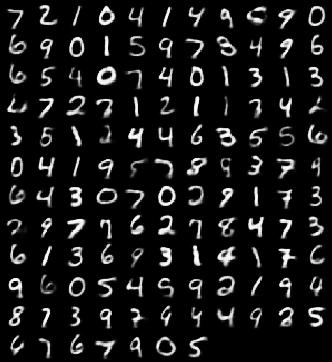 7 2 1 0 4 1 4 9 6 9 0
6 9 0 1 5 9 7 3 4 9 6
6 5 4 0 7 4 0 1 3 1 3
7 2 7 1 2 1 1 7 4 2
3 5 1 2 4 4 6 3 5 5 6
0 4 1 9 5 7 8 9 3 7 9
6 4 3 0 7 0 2 9 1 7 3
2 9 7 7 6 2 7 8 4 7 3
6 1 3 6 9 3 1 4 1 7 6
9 6 0 5 4 5 9 2 1 9 4
8 7 3 9 7 9 4 4 9 2 5
4 7 6 7 9 0 5